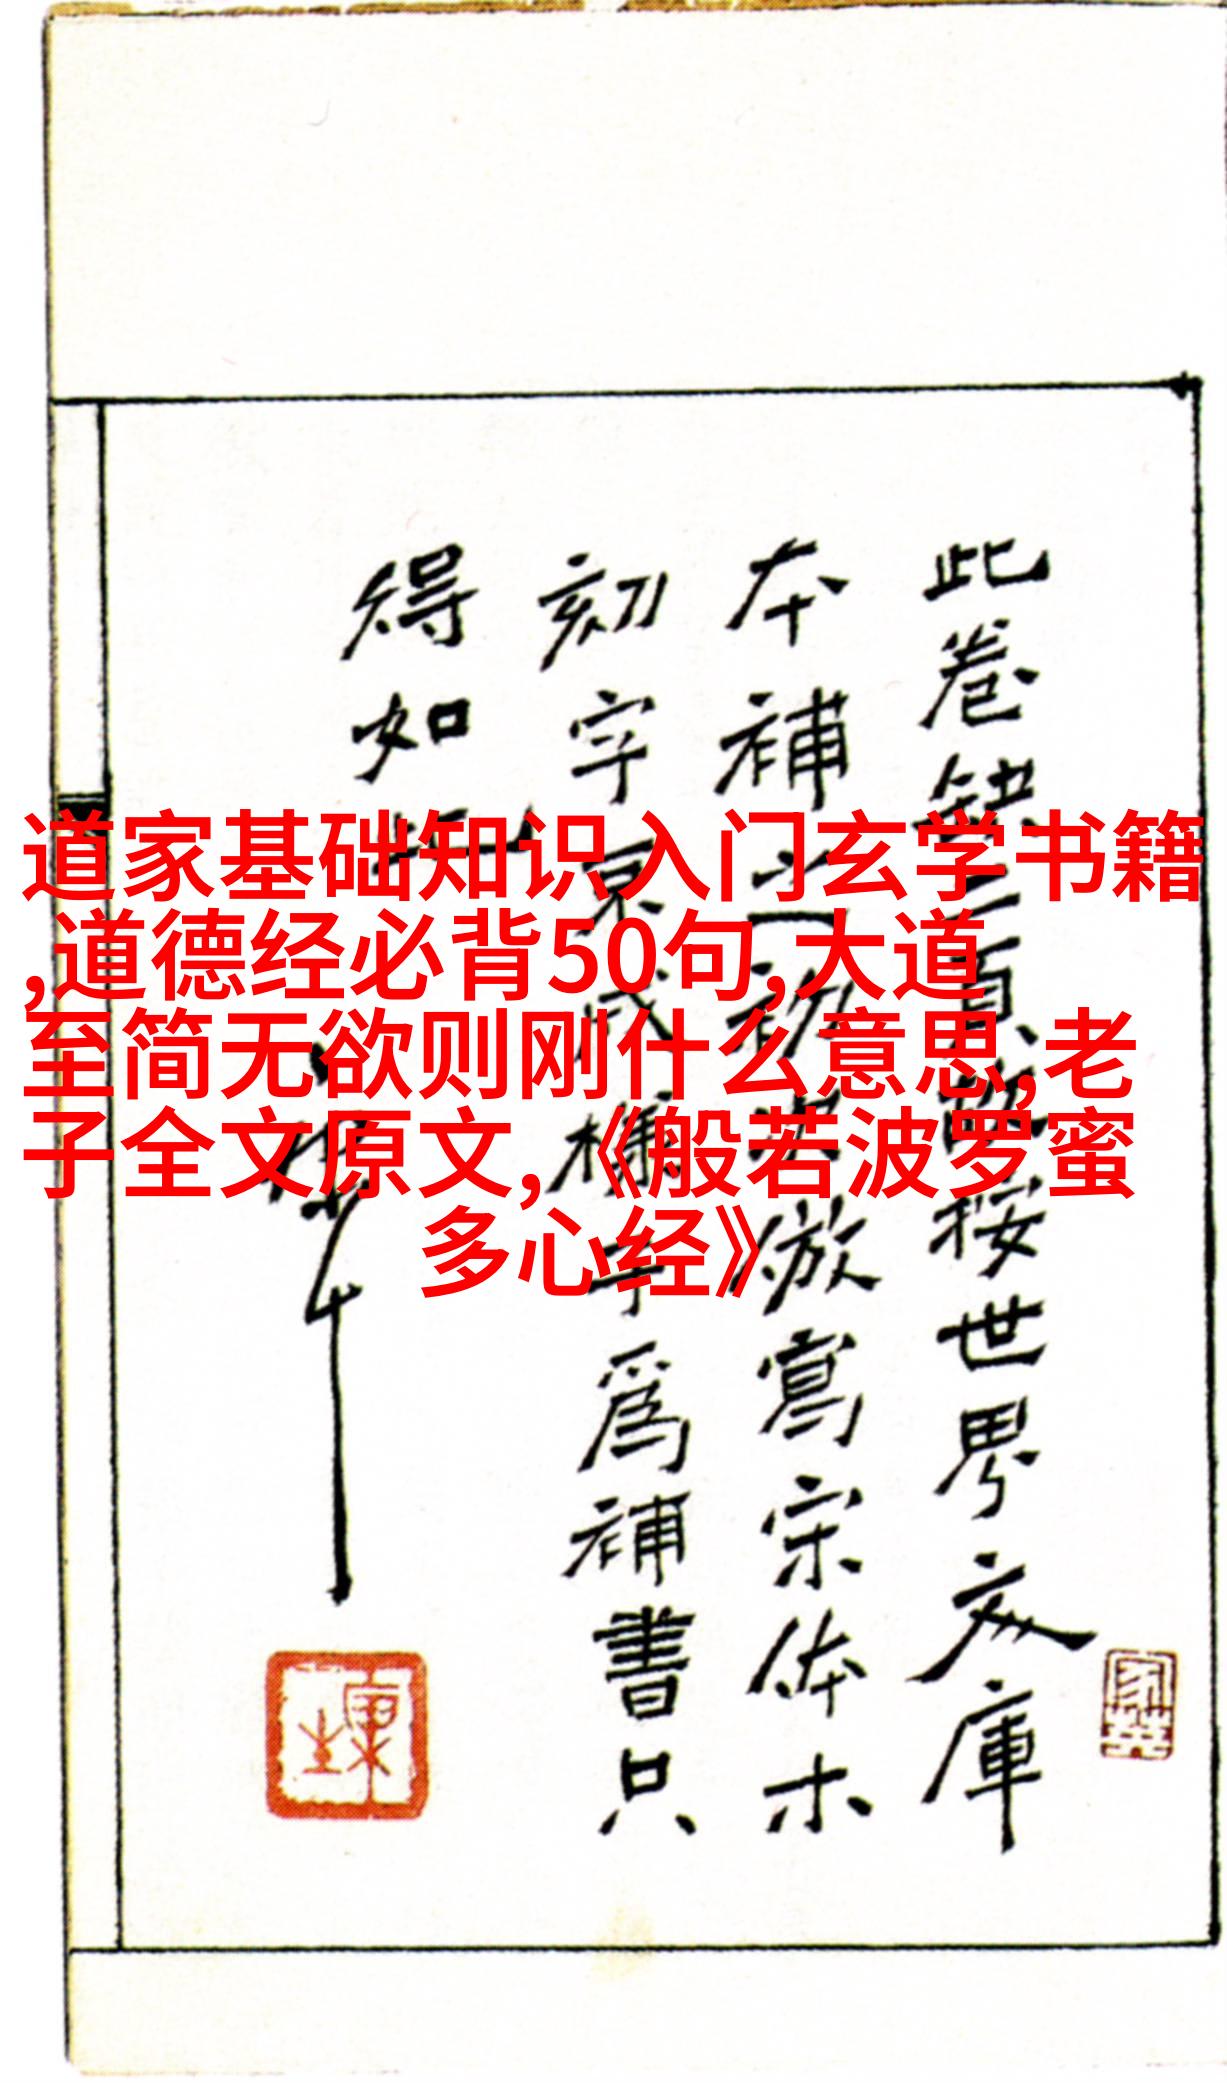 道家基础知识入门玄学书籍
,道德经必背50句,大道
至简无欲则刚什么意思,老
子全文原文,《般若波罗蜜
多心经》
此卷缺二頁 按世界文庫
本補 倣寫宋体木
刻字 爲補書只
得如此
康生